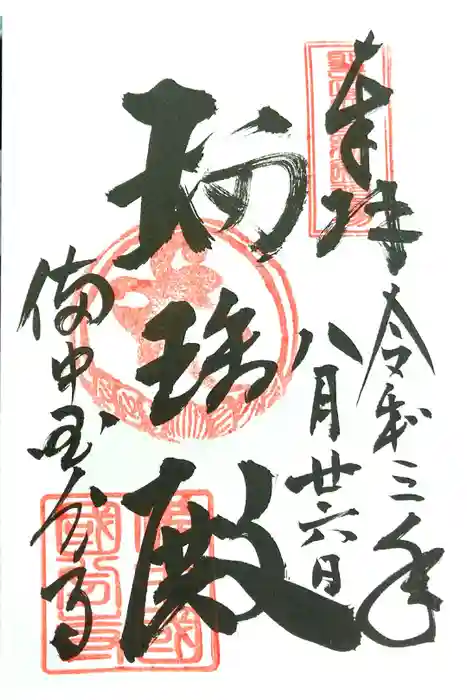 奉拝
令和三年
八月廿六日
瑠璃殿
備中国分寺